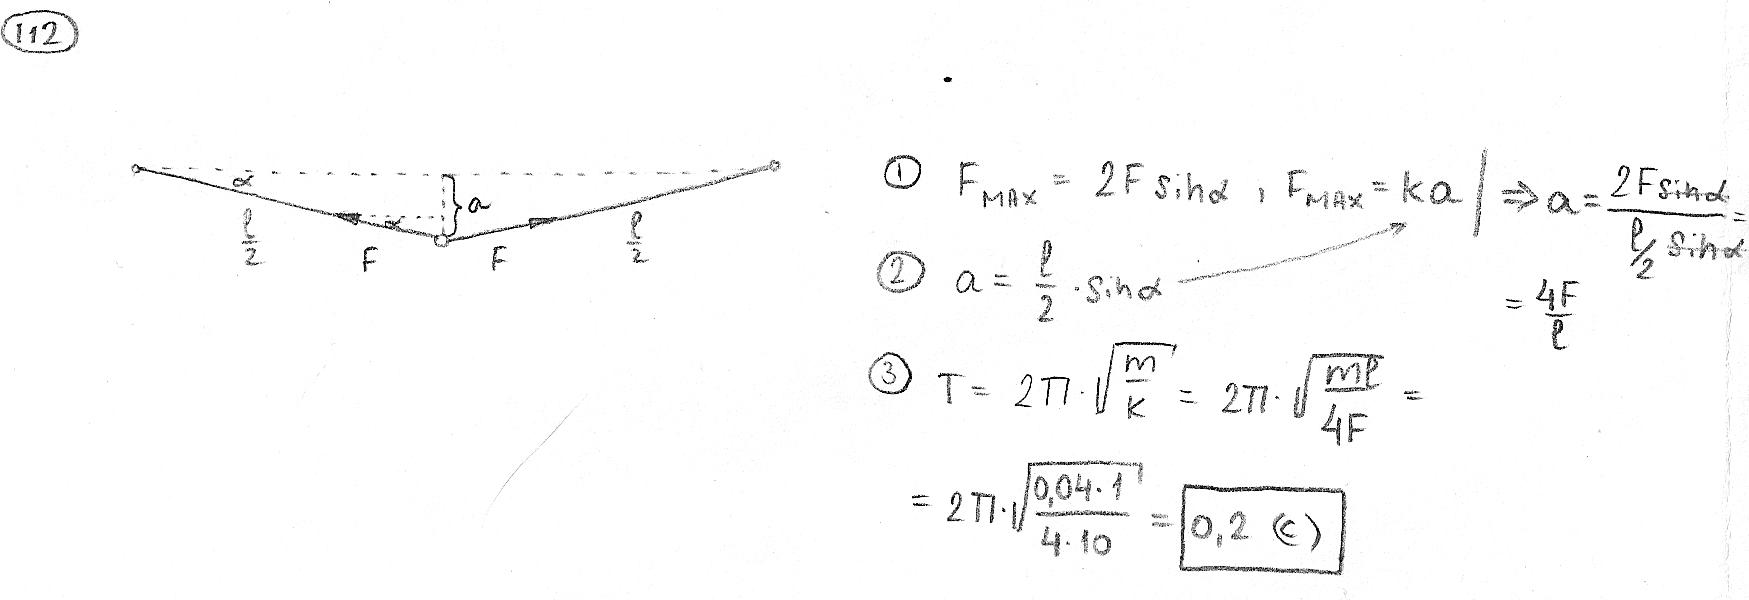 112
α
a
α
ℓ/2
F
F
ℓ/2
① F_MAX = 2F sinα , F_MAX = ka | ⇒ a = 2F sinα / (ℓ/2 sinα) =
② a = ℓ/2 · sinα
= 4F/ℓ
③ T = 2π · √(m/k) = 2π · √(mℓ/4F) =
= 2π · √(0,04 · 1 / 4 · 10) = 0,2 (c)